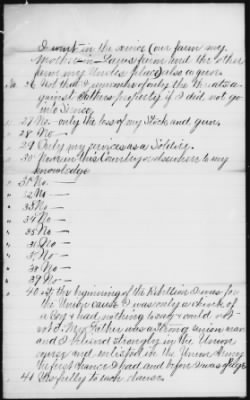 I went in the service (our farm my
Mother in Laws farm and the other
from my Uncles place) also a gun.
26 Not that I remember of only the threats a-
gainst Fathers property if I did not go
into Service
27 No - only the loss of my Stock and gun.
28 No —
29 Only my services as a Soldier.
30 in this Country or elsewhere to my
knowledge
31 No —
32 No —
33 No —
34 No —
35 No —
36 No —
37 No —
38 No —
39 No —
40 At the beginning of the Rebellion I was for
the Union cause I was only a chunk of
a boy & had nothing to say & could not
vote. My Father was a strong union man
and I believed strongly in the Union
cause and enlisted in the Union Army
the first chance I had and before I was of age
41 to each clause.